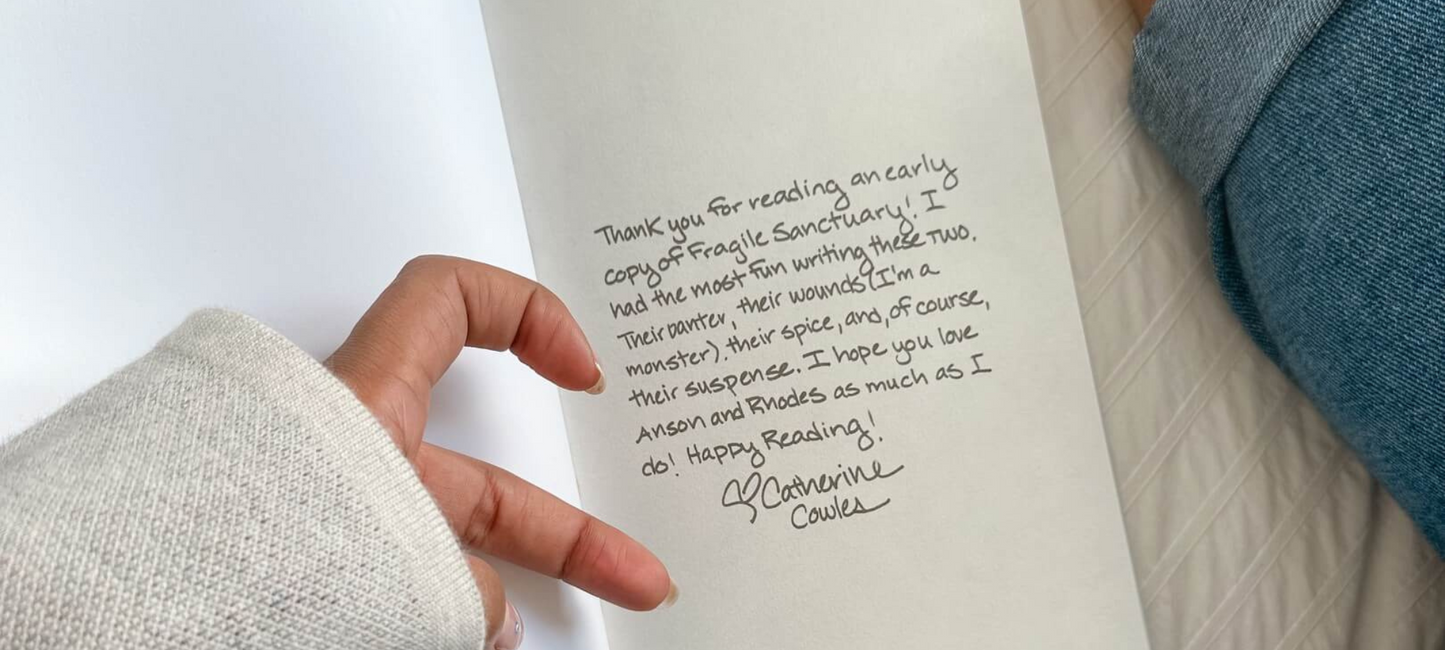 Thank you for reading an early
copy of Fragile Sanctuary! I
had the most fun writing these two.
Their banter, their wounds (I'm a
monster), their spice, and, of course,
their suspense. I hope you love
Anson and Rhodes as much as I
do! Happy Reading!
♡ Catherine
Cowles